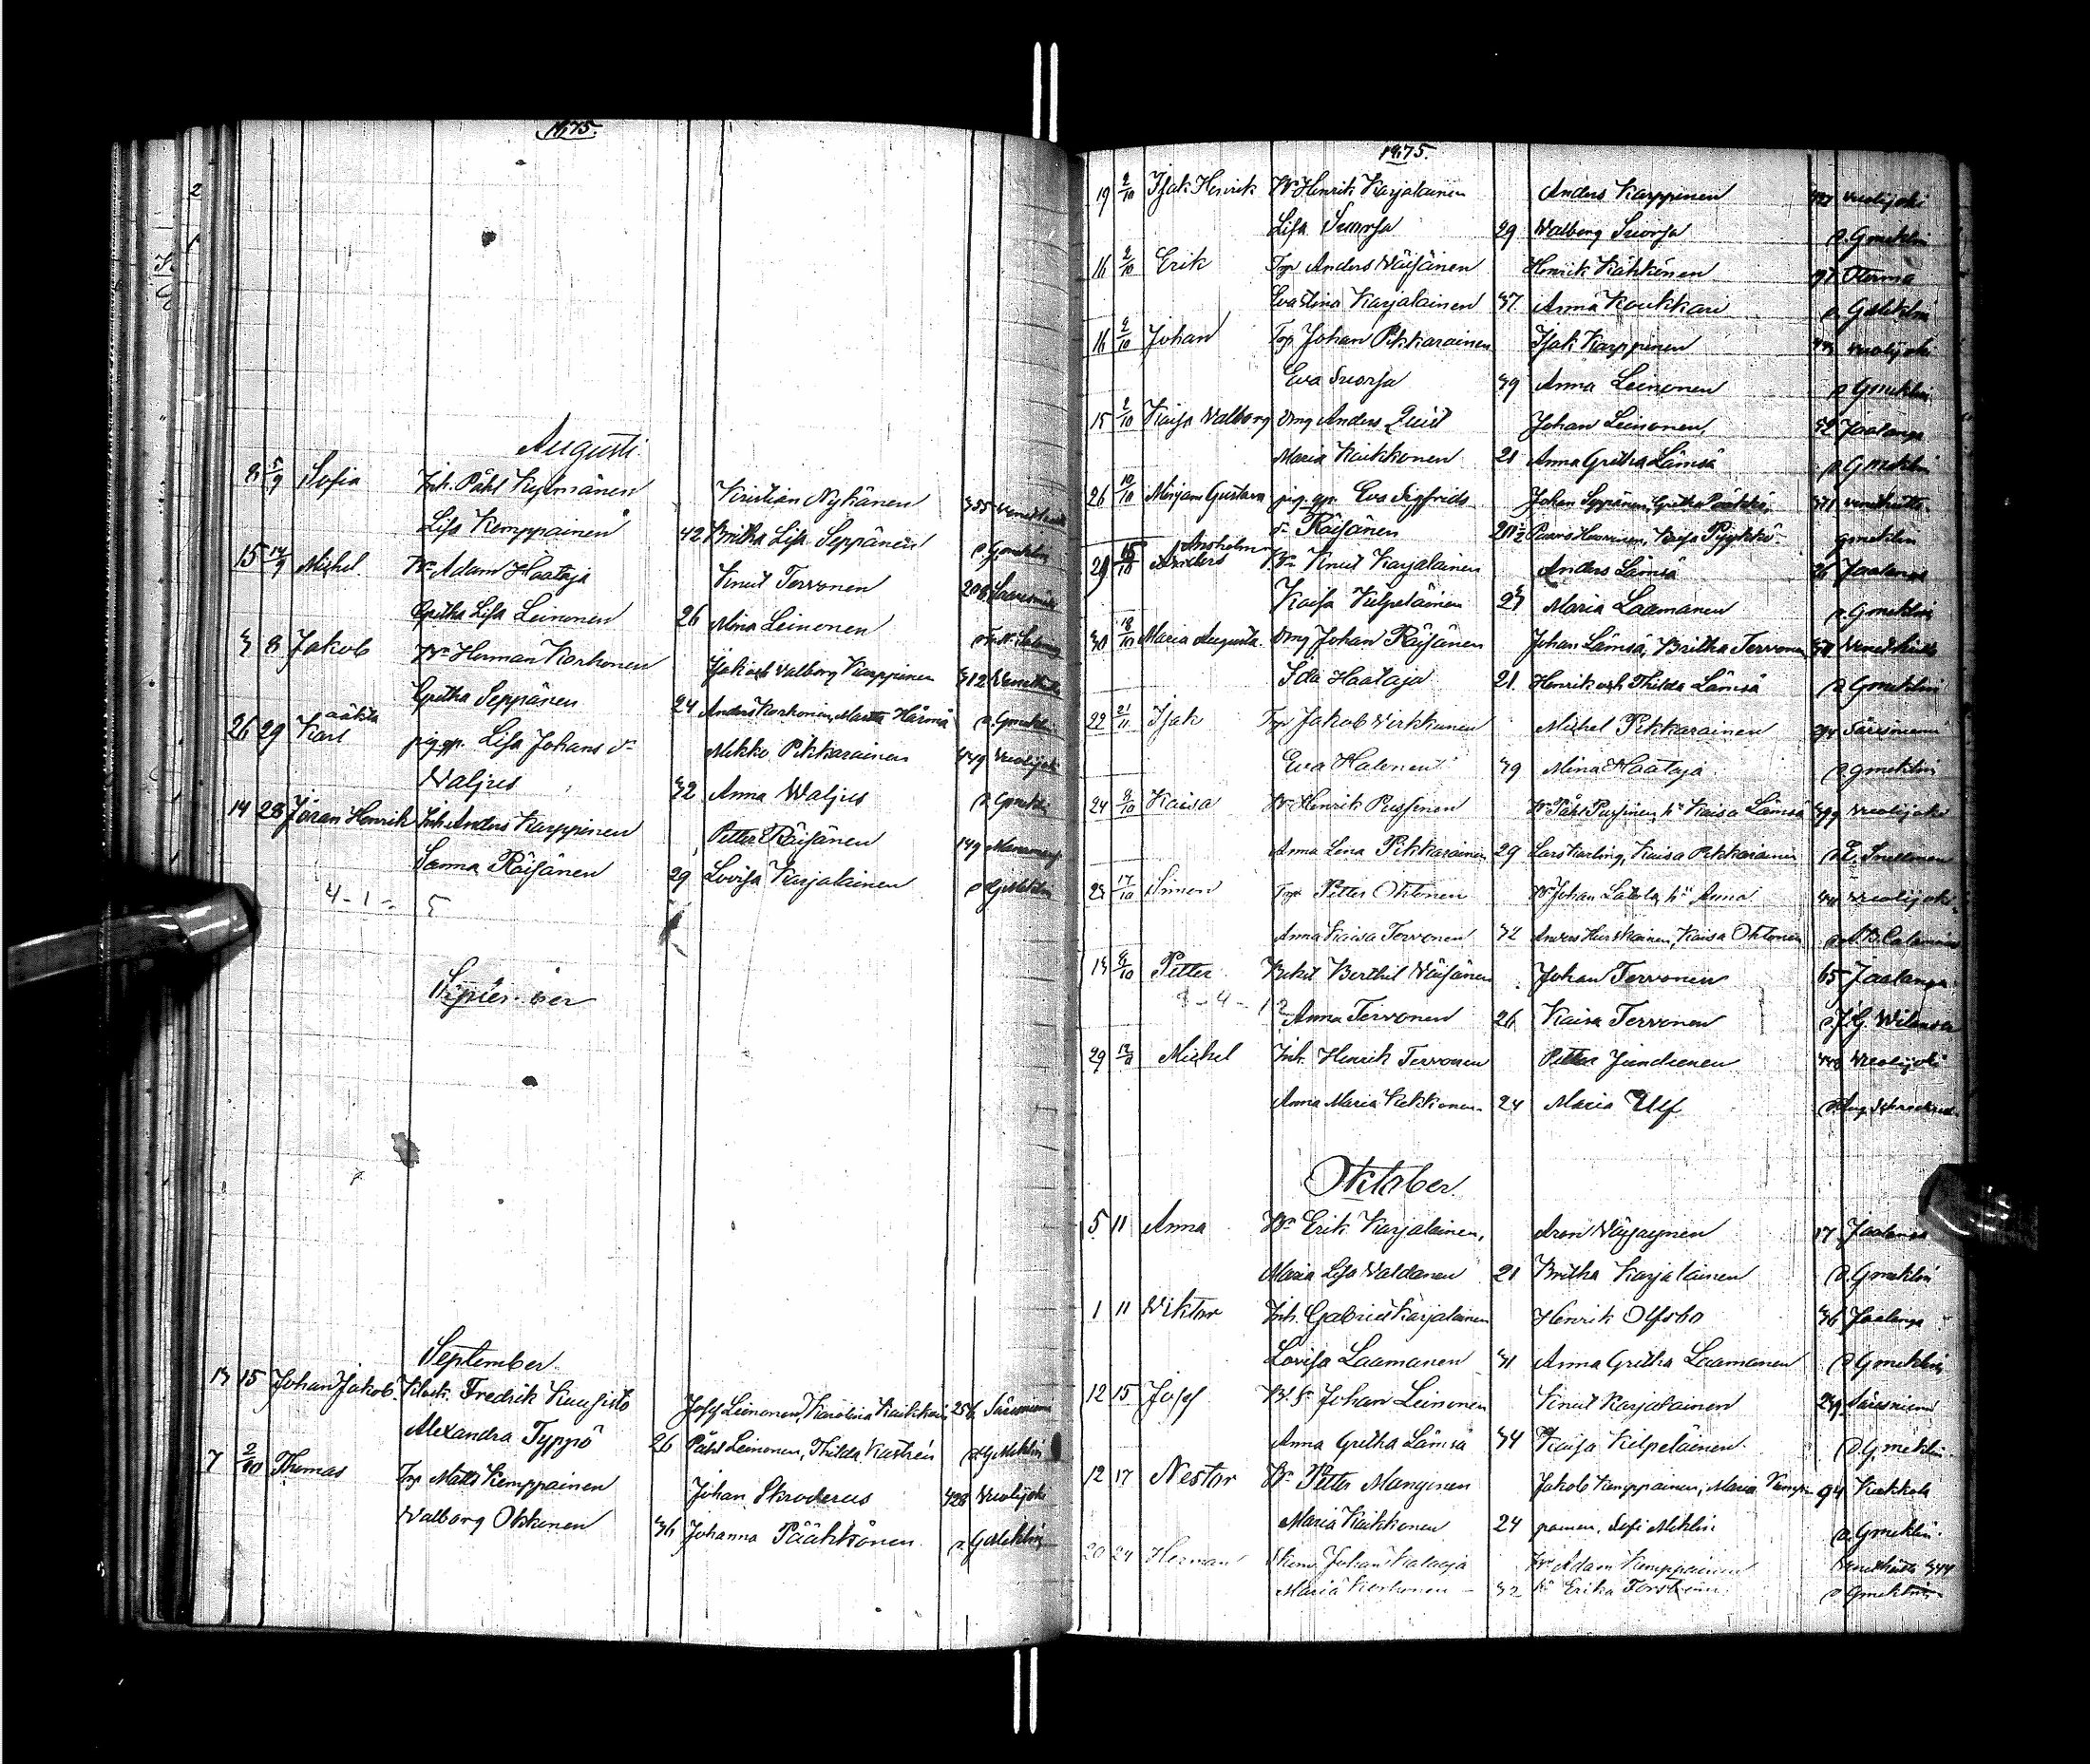 1875.
Augusti
8 5/9 Sofia Inh. Påhl Kylmänen Kristian Nykänen 355
Lisa Kemppainen 42 Britha Lisa Seppänen p. Gmeklin
15 12/9 Michel Bn Adam Haataja Knut Tervonen 206
Gretha Lisa Leinonen 26 Mina Leinonen
3 8 Jakob Bn Herman Korhonen Isak och Valborg Karppinen 312
Gretha Seppänen 24 Anders Korhonen, Martta Härmä p. Gmeklin
26 29 Karl oäkta pig. gp. Lisa Johans dr Mikko Pikkarainen 449 Vuolijoki
Valjus 32 Anna Waljus p. Gmeklin
14 28 Jöran Henrik Inh. Anders Karppinen Petter Räisänen 149
Sanna Räisänen 29 Lovisa Karjalainen p. GMeklin
4-1= 5
September
13 15 Johan Jakob Fredrik Kuusisto Josef Leinonen, Karolina Kaikkonen 256 Säresniemi
Alexandra Typpö 26 Påhl Leinonen, Thilda Kastrén p. GMeklin
7 2/10 Thomas Trp Matts Kemppainen Johan Skroderus 428 Vuolijoki
Walborg Okkonen 36 Johanna Pääkkönen p. GMeklin
1875.
19 2/10 Isak Henrik Bn Henrik Karjalainen Anders Karppinen Vuolijoki
Lisa Suorsa 29 Walborg Suorsa p. Gmeklin
16 2/10 Erik Trp Anders Väisänen Henrik Kähkönen 97 Oterma
Eva Stina Karjalainen 37 Anna Koukkari p. GMeklin
16 2/10 Johan Trp Johan Pikkarainen Isak Karppinen Vuolijoki
Eva Suorsa 39 Anna Leinonen p. Gmeklin
15 2/10 Kaisa Valborg Drng Anders Quist Johan Leinonen 32 Jaalanga
Maria Kaikkonen 21 Anna Gretha Lämsä p. Gmeklin
26 10/10 Mirjam Gustava pig. gp. Eva Sigfrids Johan Seppänen, Gretha
dr Räisänen Kaisa Pyykkö Gmeklin
29 Anshelm Anders Bn Knut Karjalainen Anders Lämsä 26 Jaalanga
Kaisa Kilpeläinen Maria Laamanen p. Gmeklin
30 18/10 Maria Augusta Drng Johan Räisänen Johan Lämsä, Britha Tervonen
Ida Haataja 21. Henrik och Thilda Lämsä p. Gmeklin
22 21/11 Isak Trp Jakob Wirkkunen Michel Pikkarainen Säresniemi
Eva Halonen 39 Mina Haataja p. Gmeklin
24 8/10 Kaisa Bn Henrik Pursinen Bn Påhl Pursinen, hu Kaisa Lämsä 399 Vuolijoki
Anna Lena Pikkarainen 29 Lars Karling, Kaisa Pikkarainen p. E. Snellman
23 17/10 Simon Trp Petter Ohtonen Bn Johan Latola, hu Anna Vuolijoki
Anna Kaisa Tervonen 32 Anders Hurskainen, Kaisa Ohtonen
13 8/10 Petter Berthil Väisänen Johan Tervonen 65 Jaalanga
Anna Tervonen 26 Kaisa Tervonen
29 Michel Inh. Henrik Tervonen Petter Jundunen Vuolijoki
Anna Maria Kekkonen 24 Maria Ulf
Oktober
5 11 Anna Bn Erik Karjalainen, Aron Väyrynen 17 Jaalanga
Maria Lisa Valdanen 21 Britha Karjalainen p. Gmeklin
1 11 Wiktor Inh. Gabriel Karjalainen Henrik Olfsbo 36 Jaalanga
Lovisa Laamanen 31 Anna Gretha Laamanen p. Gmeklin
12 15 Josef Johan Leinonen Knut Karjalainen 239 Säresniemi
Anna Gretha Lämsä 34 Kaisa Kilpeläinen p. Gmeklin
12 17 Nestor Bn Petter Manginen Jakob Kemppainen, Maria Kemp- 94
Maria Kaikkonen 24 painen, Sofi Meklin p. Gmeklin
20 24 Herman Johan Kataaja Bn Adam Kemppainen 344
Maria Korhonen 32 hu Erika p. Gmeklin